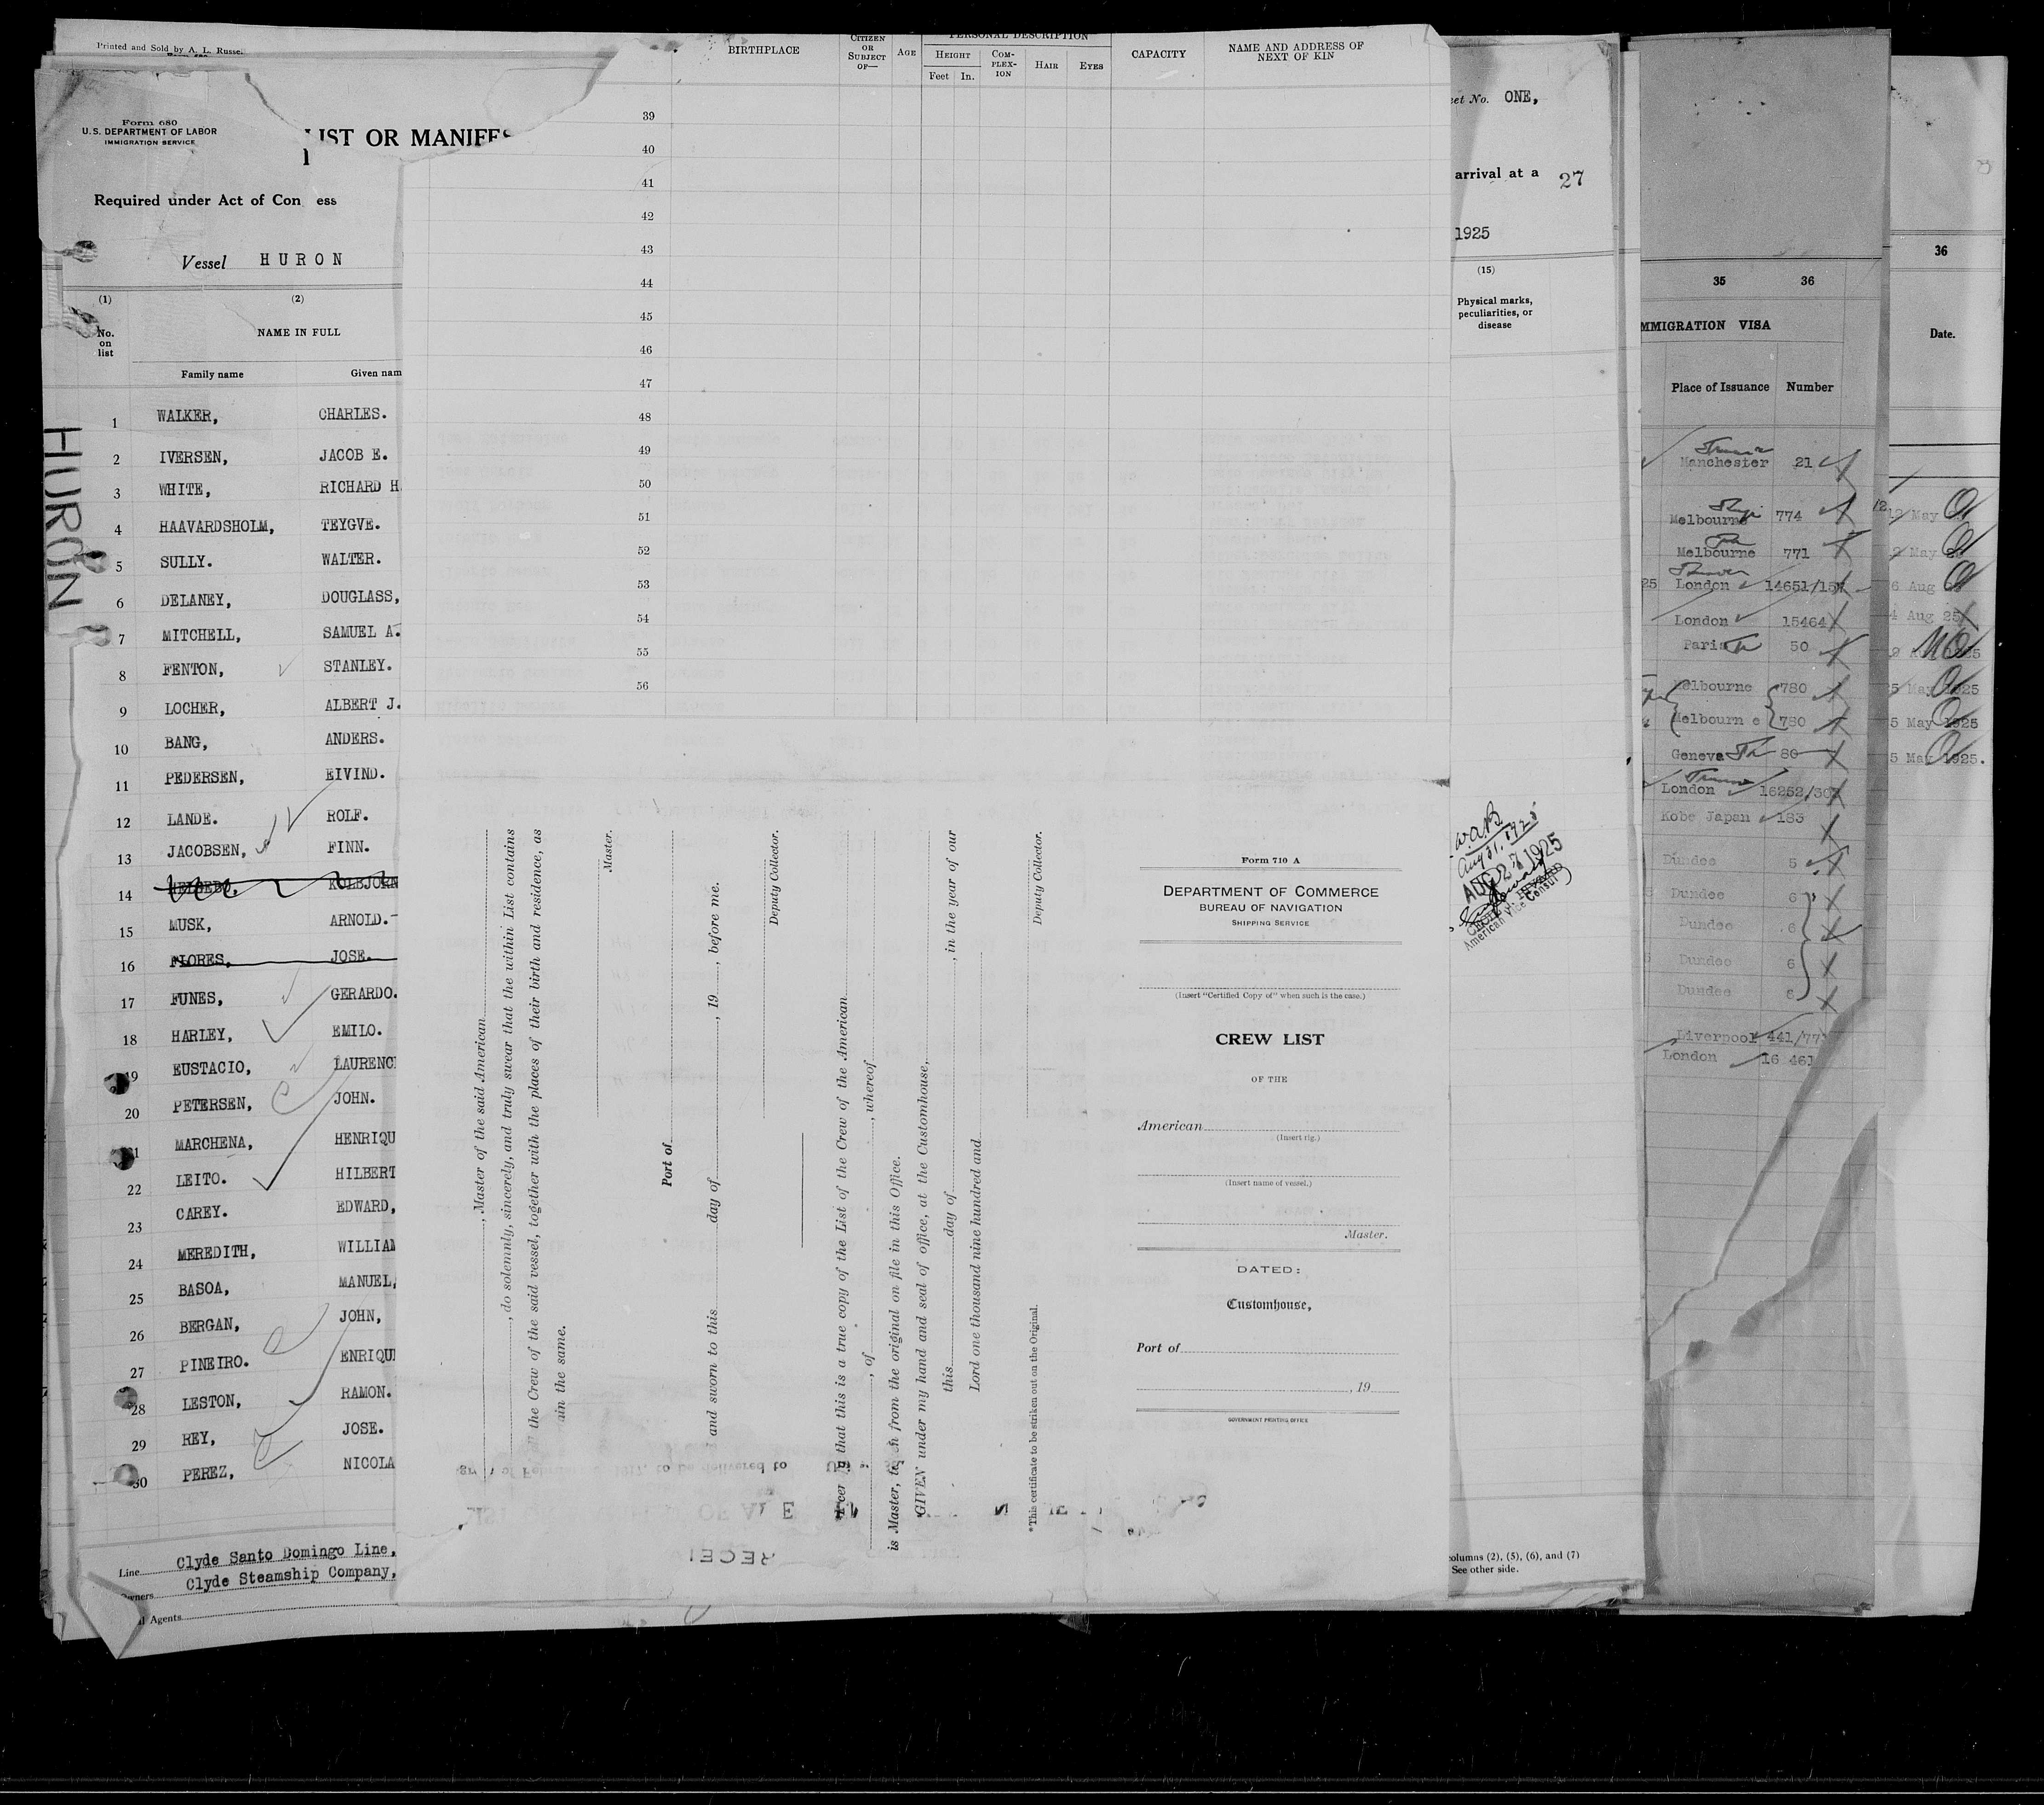 Printed and Sold by A. L. Russe.
Form 680
U.S. DEPARTMENT OF LABOR
IMMIGRATION SERVICE
IST OR MANIFES
Required under Act of Con ess
Vessel HURON
(1) (2)
No. on list
NAME IN FULL
Family name Given nam
HURON
1 WALKER, CHARLES.
2 IVERSEN, JACOB E.
3 WHITE, RICHARD H
4 HAAVARDSHOLM, TEYGVE.
5 SULLY. WALTER.
6 DELANEY, DOUGLASS,
7 MITCHELL, SAMUEL A.
8 FENTON, STANLEY.
9 LOCHER, ALBERT J.
10 BANG, ANDERS.
11 PEDERSEN, EIVIND.
12 LANDE. ROLF.
13 JACOBSEN, FINN.
14 KOLBJORN
15 MUSK, ARNOLD.
16 FLORES, JOSE.
17 FUNES, GERARDO.
18 HARLEY, EMILO.
19 EUSTACIO, LAURENC
20 PETERSEN, JOHN.
21 MARCHENA, HENRIQU
22 LEITO. HILBERT
23 CAREY. EDWARD,
24 MEREDITH, WILLIAM
25 BASOA, MANUEL,
26 BERGAN, JOHN,
27 PINEIRO. ENRIQUE
28 LESTON, RAMON.
29 REY, JOSE.
30 PEREZ, NICOLA
Line Clyde Santo Domingo Line,
Owners Clyde Steamship Company,
l Agents
BIRTHPLACE
CITIZEN OR SUBJECT OF—
AGE
PERSONAL DESCRIPTION
HEIGHT
Feet In.
COM-PLEX-ION
HAIR
EYES
CAPACITY
NAME AND ADDRESS OF NEXT OF KIN
39
40
41
42
43
44
45
46
47
48
49
50
51
52
53
54
55
56
, Master of the said American
, do solemnly, sincerely, and truly swear that the within List contains
the Crew of the said vessel, together with the places of their birth and residence, as
ain the same.
Master.
Port of
and sworn to this day of , 19 , before me.
Deputy Collector.
that this is a true copy of the List of the Crew of the American
, of , whereof
is Master, from the original on file in this Office.
GIVEN under my hand and seal of office, at the Customhouse,
this day of , in the year of our
Lord one thousand nine hundred and
Deputy Collector.
*This certificate to be striken out on the Original.
Form 710 A
DEPARTMENT OF COMMERCE
BUREAU OF NAVIGATION
SHIPPING SERVICE
(Insert "Certified Copy of" when such is the case.)
CREW LIST
OF THE
American
(Insert rig.)
(Insert name of vessel.)
Master.
DATED:
Customhouse,
Port of
, 19
GOVERNMENT PRINTING OFFICE
eet No. ONE,
arrival at a 27
1925
(15)
Physical marks, peculiarities, or disease
Aug 31, 1925
AUG 27 1925
American Vice Consul
olumns (2), (5), (6), and (7)
See other side.
35 36
MMIGRATION VISA
Place of Issuance Number
Manchester 21
Melbourne 774
Melbourne 771
London 14651/15
London 15464
Paris 50
Melbourne 780
Melbourn e 780
Geneva 80
London 16252/30
Kobe Japan 183
Dundee 5
Dundee 6
Dundee 6
Dundee 6
Dundee 6
Liverpool 441/77
London 16 461
36
Date.
12 May
2 May
6 Aug
4 Aug 25
5 May 1925
5 May 1925
5 May 1925.